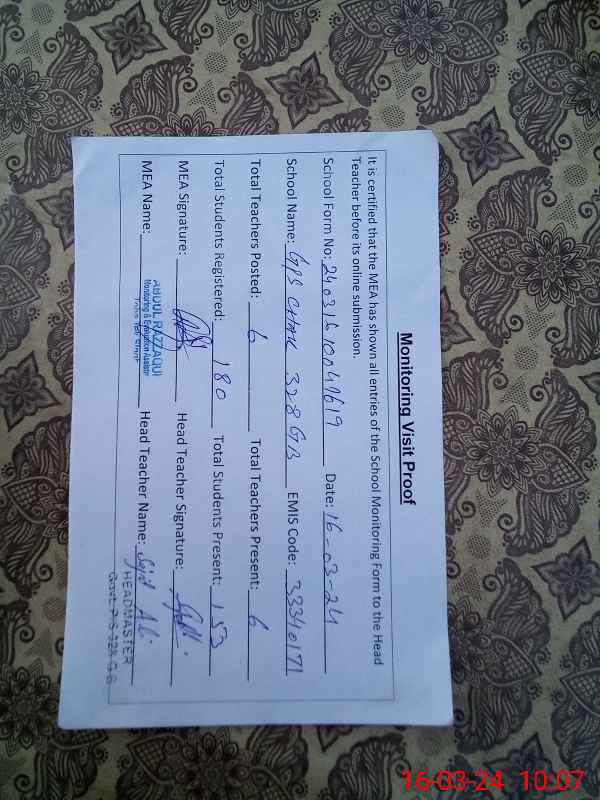 Monitoring Visit Proof
It is certified that the MEA has shown all entries of the School Monitoring Form to the Head
Teacher before its online submission.
School Form No: 24031610049619 Date: 16-03-24
School Name: GPS CHAK 328 GB EMIS Code: 33340171
Total Teachers Posted: 6 Total Teachers Present: 6
Total Students Registered: 180 Total Students Present: 153
MEA Signature: Head Teacher Signature:
MEA Name: ABDUL RAZZAQUI Head Teacher Name:
Monitoring & Evaluation Assistant
HEADMASTER
Govt. P/S 328 G.B
16-03-24 10:07